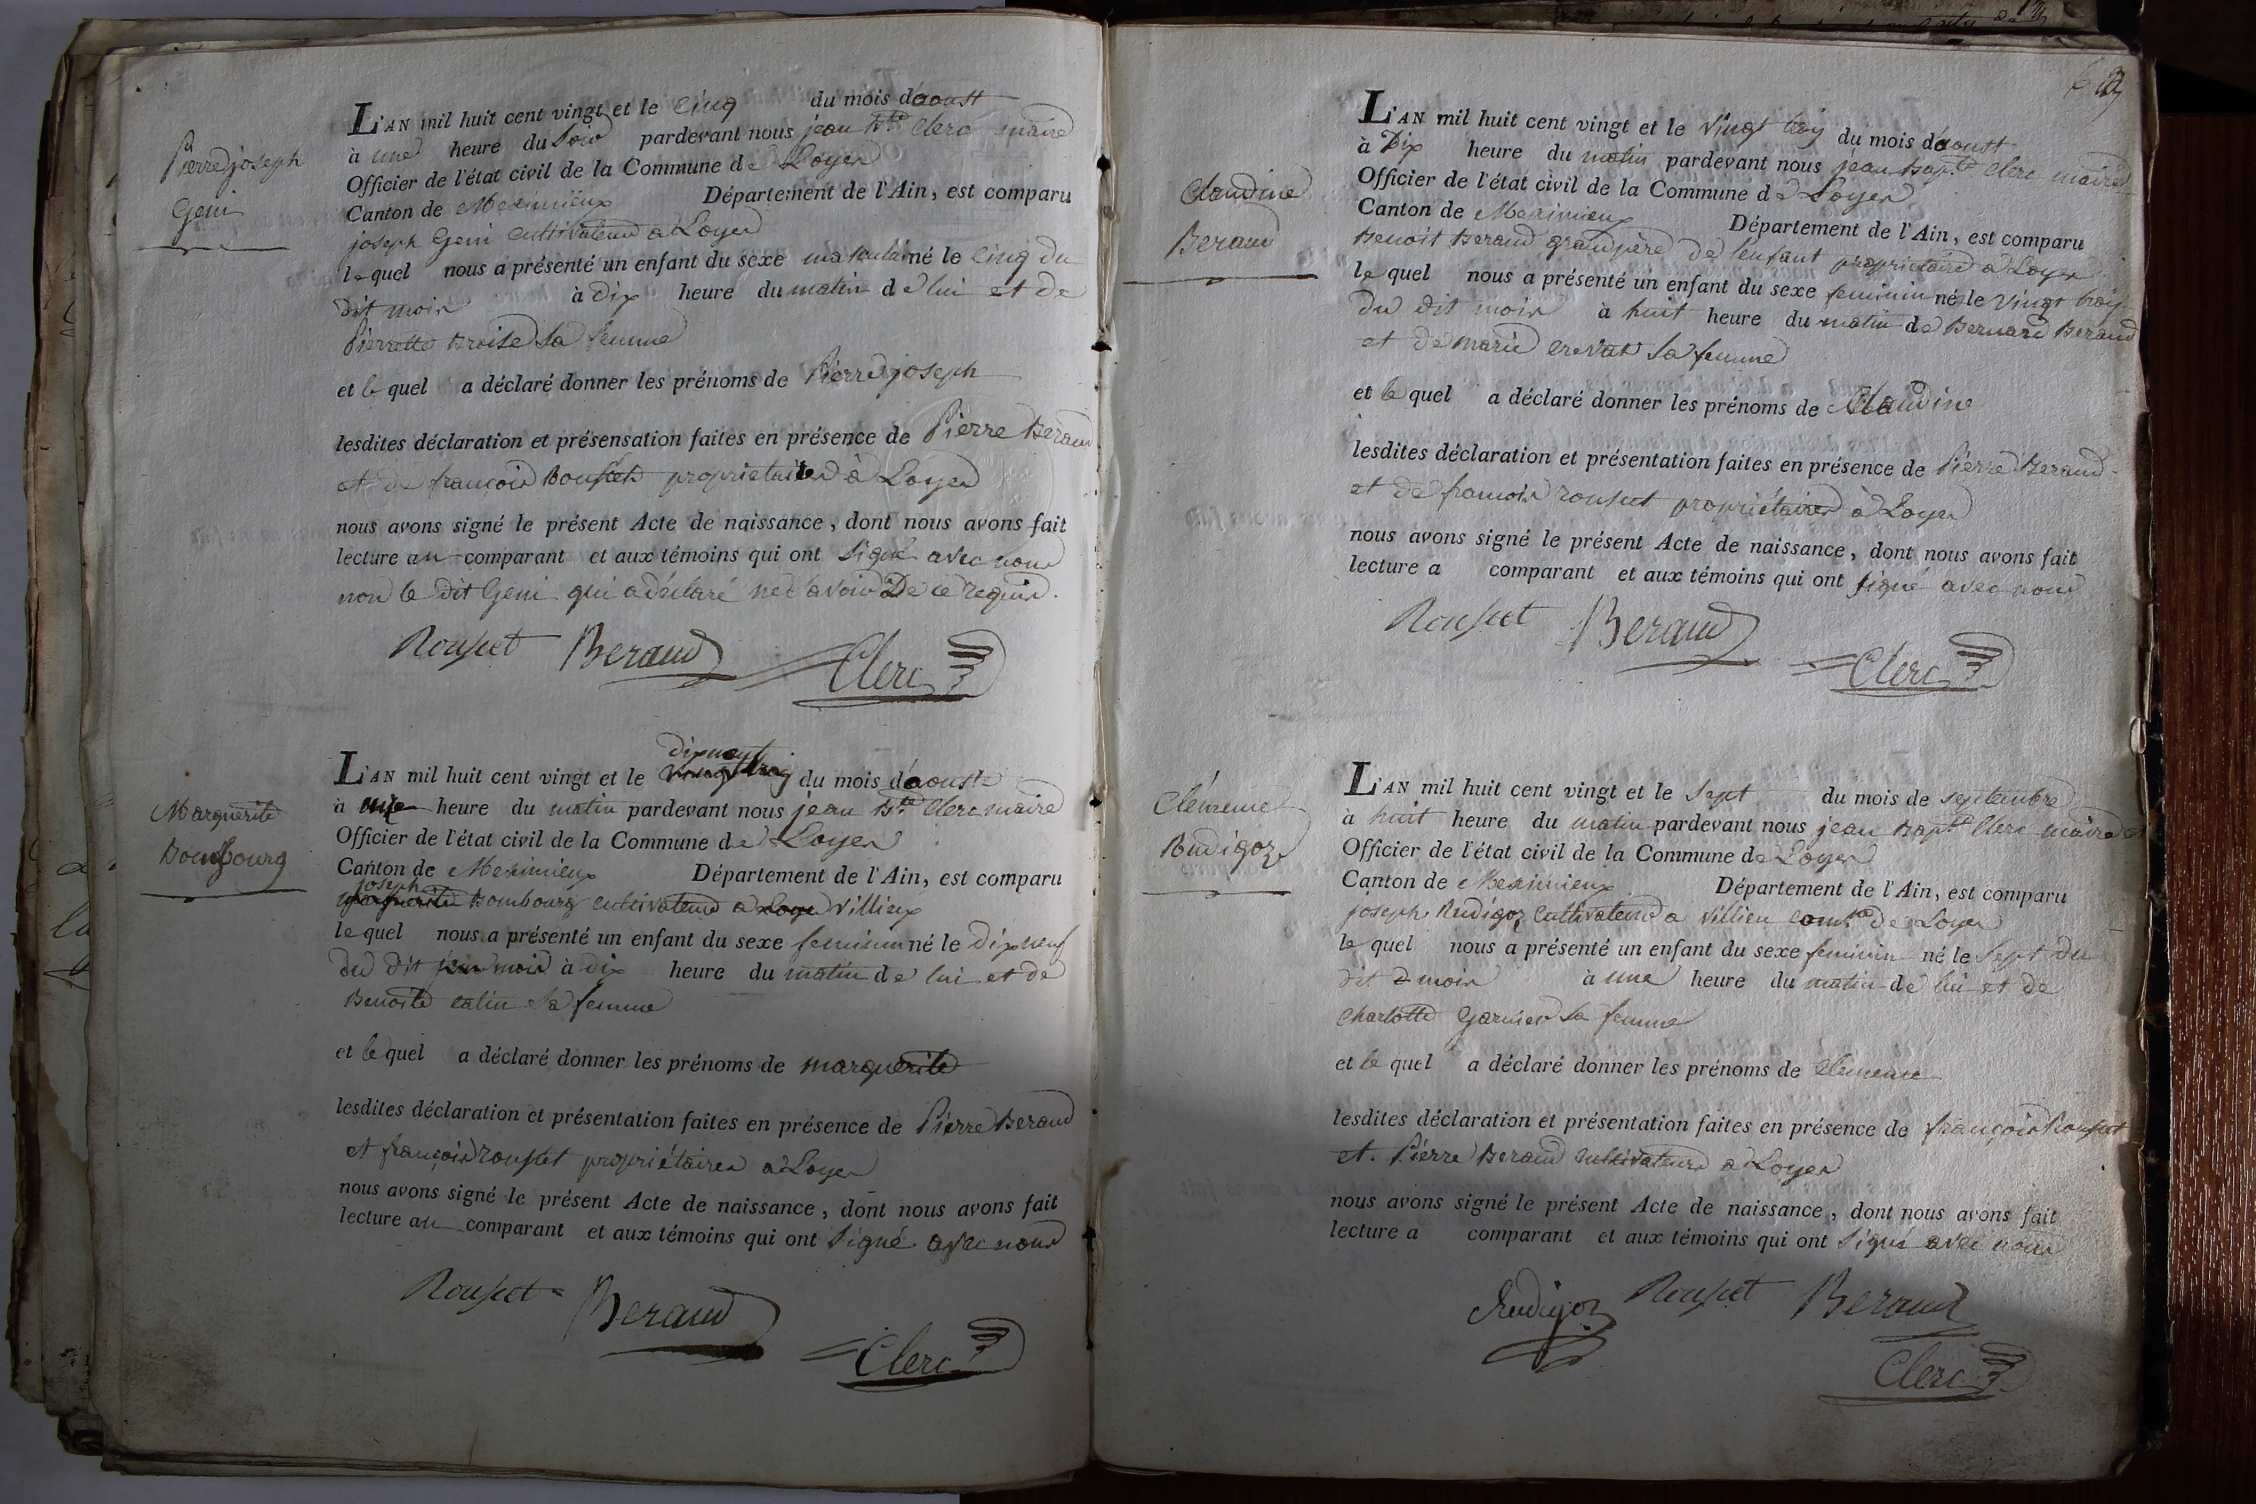 Pierre joseph
Geni
L'AN mil huit cent vingt et le cinq du mois daoust
à une heure du Soir pardevant nous jean Bte Clerc maire
Officier de l'état civil de la Commune de Loyes
Canton de Meximieux Département de l'Ain, est comparu
joseph Geni cultivateur a Loyes
lequel nous a présenté un enfant du sexe masculin né le Cinq du
dit mois à dix heure du matin de lui et de
Pierrette Broise sa femme
et le quel a déclaré donner les prénoms de Pierre joseph
lesdites déclaration et présensation faites en présence de Pierre Beraud
et de françois Rousset proprietaires à Loyes
nous avons signé le présent Acte de naissance, dont nous avons fait
lecture au comparant et aux témoins qui ont signé avec nous
non le dit Geni qui a déclaré ne savoir De ce requis.
Rousset Beraud Clerc
Marguerite
Bombourg
dixneuf
L'AN mil huit cent vingt et le vingt trois du mois daoust
à heure du matin pardevant nous jean Bte Clerc maire
Officier de l'état civil de la Commune de Loyes
Canton de Meximieux Département de l'Ain, est comparu
joseph
marguerite Bombourg cultivateur a Loyes Villieux
le quel nous a présenté un enfant du sexe feminin né le dixneuf
du dit mois à dix heure du matin de lui et de
Benoite catin sa femme
et le quel a déclaré donner les prénoms de marguerite
lesdites déclaration et présentation faites en présence de Pierre Beraud
et françois rousset propriétaires a Loyes
nous avons signé le présent Acte de naissance, dont nous avons fait
lecture au comparant et aux témoins qui ont signé avec nous
Rousset Beraud
Clerc
Claudine
Beraud
L'AN mil huit cent vingt et le vingt troy du mois daoust
à Dix heure du matin pardevant nous jean Bapte Clerc maire
Officier de l'état civil de la Commune de Loyes
Canton de Meximieux Département de l'Ain, est comparu
Benoit Beraud grandpère de l'enfant proprietaire a Loyes
le quel nous a présenté un enfant du sexe feminin né le vingt troy
du dit mois à huit heure du matin de Bernard Beraud
et de marie crevat sa femme
et le quel a déclaré donner les prénoms de Claudine
lesdites déclaration et présentation faites en présence de Pierre Beraud
et de francois rousset propriétaires à Loyes
nous avons signé le présent Acte de naissance, dont nous avons fait
lecture a comparant et aux témoins qui ont signé avec nous
Rousset Beraud
Clerc
Clémence
Rudigoz
L'AN mil huit cent vingt et le sept du mois de septembre
à huit heure du matin pardevant nous jean Bapte Clerc maire
Officier de l'état civil de la Commune de Loyes
Canton de Meximieux Département de l'Ain, est comparu
joseph Rudigoz cultivateur a Villieu comne de Loyes
le quel nous a présenté un enfant du sexe feminin né le sept du
dit mois à une heure du matin de lui et de
charlotte Garnier sa femme
et le quel a déclaré donner les prénoms de clemence
lesdites déclaration et présentation faites en présence de françois Rousset
et Pierre Beraud cultivateurs a Loyes
nous avons signé le présent Acte de naissance, dont nous avons fait
lecture a comparant et aux témoins qui ont signé avec nous
Rudigoz Rousset Beraud
Clerc